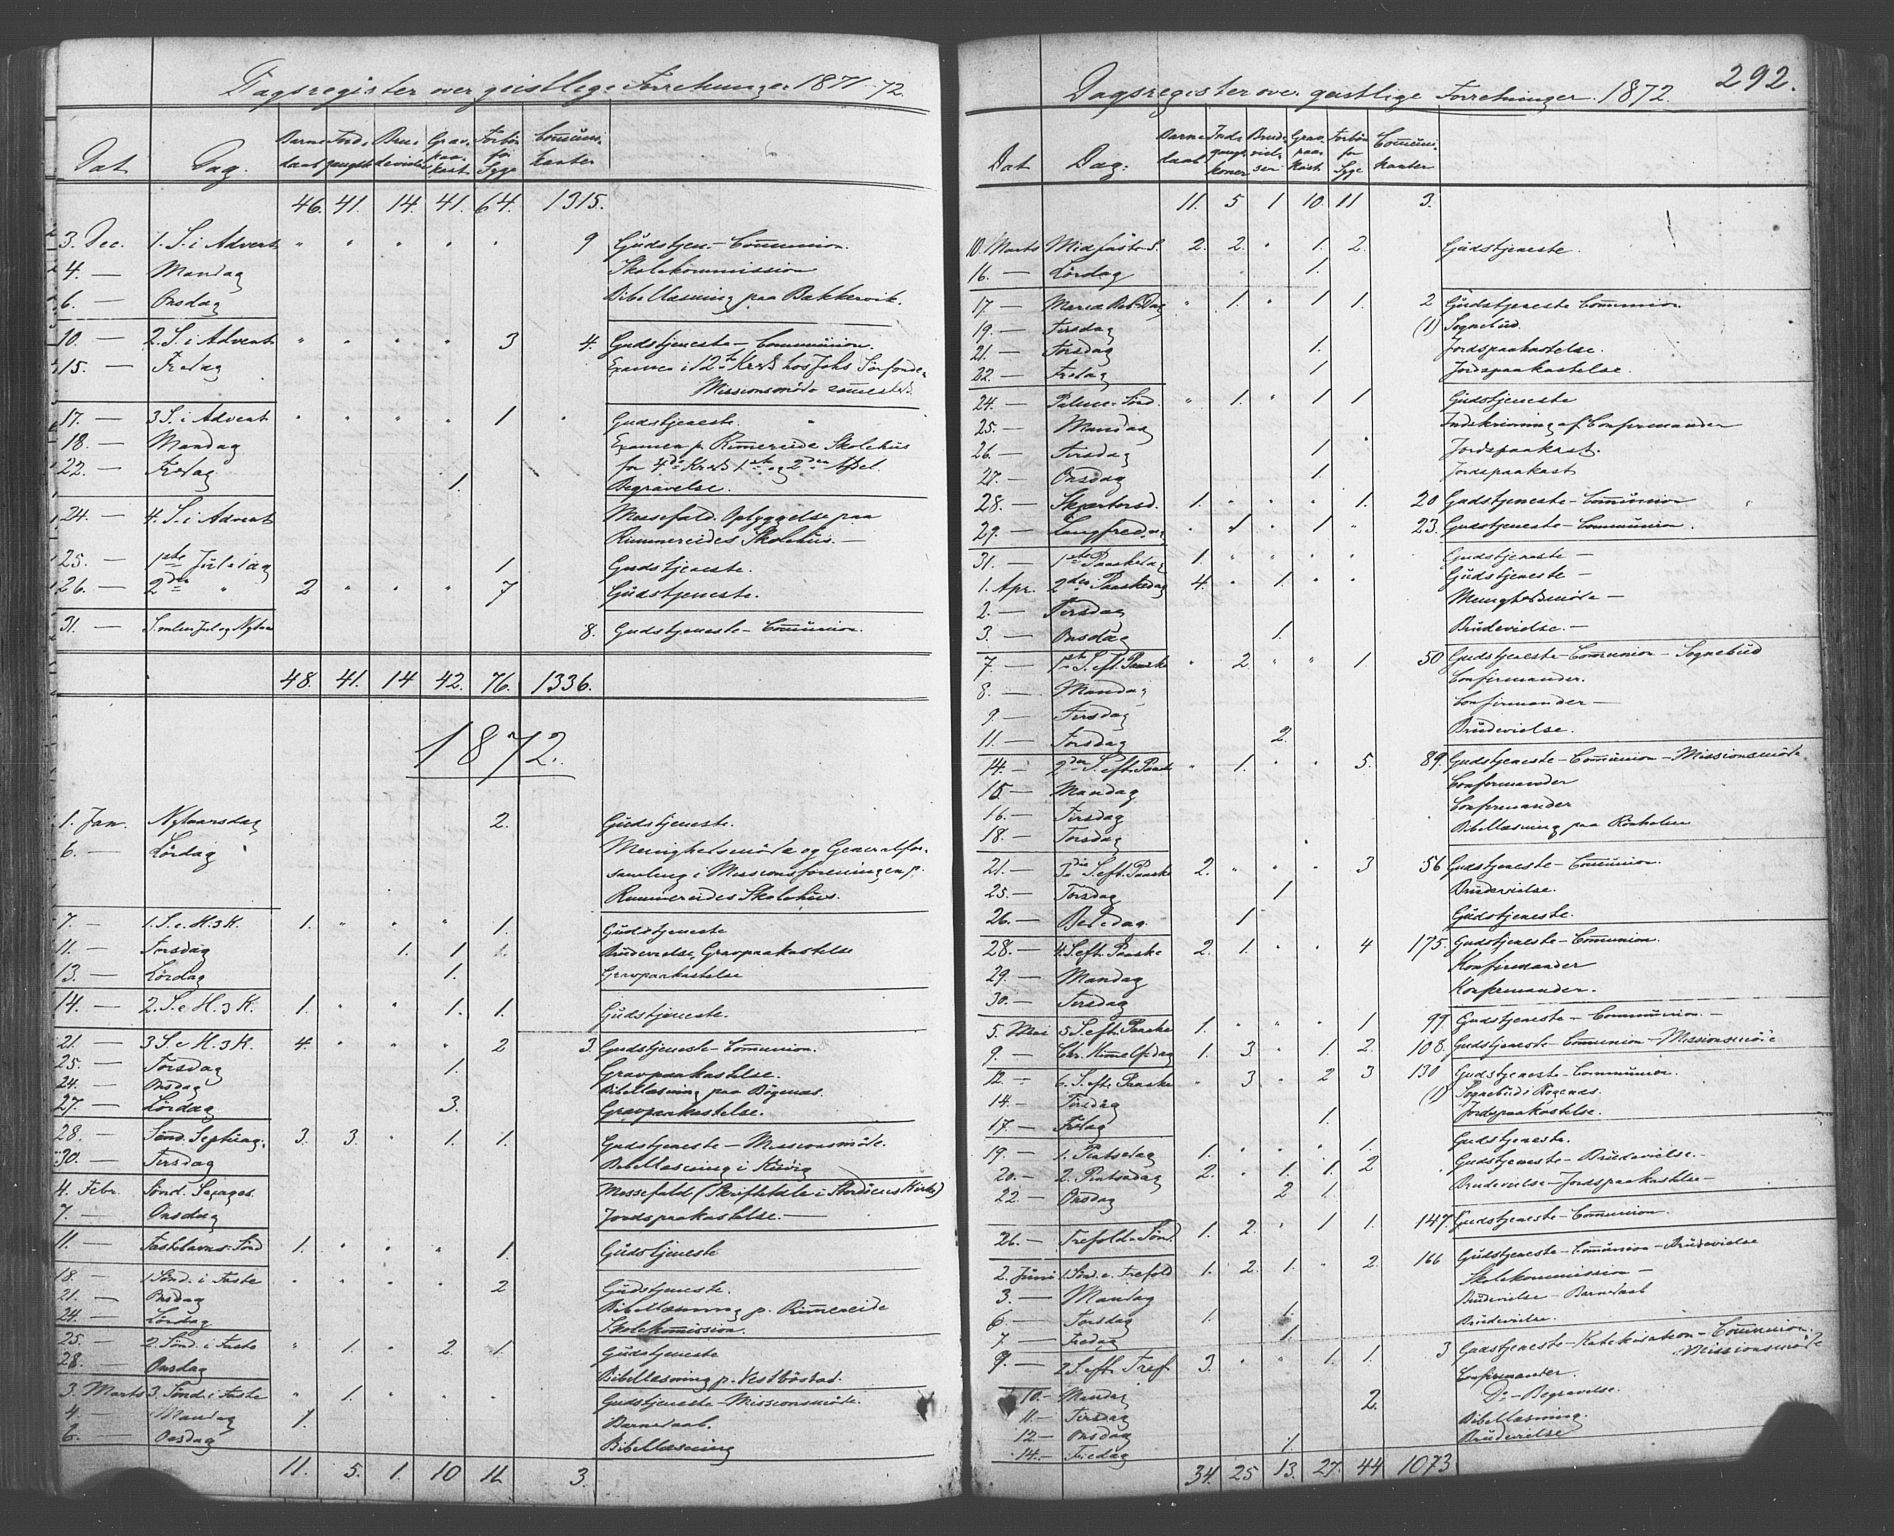 Dagsregister over geistlige Forretninger 1871-72.
Dat Dag. Barne daab Indgangsk. Brudevielse Gravpaakast. Forbön for Syge Communikanter
46. 41. 14. 41. 64. 1315.
3. Dec. 1. S. i Advent " " " " " 9 Gudstjen. - Communion.
4. — Mandag Skolekommission
6. — Onsdag Bibellæsning paa Bakkervik.
10. — 2. S. i Advent " " " " 3 4. Gudstjeneste - Communion.
15. — Fredag Examen i 12te Kreds hos Johs
Missionsmöde sammesteds.
17. — 3 S. i Advent " " " " 1 " Gudstjeneste.
18. — Mandag Examen p. Rimereide Skolehus
22. — Fredag for 4de Kreds 1ste og 2den Afdel.
1. Begravelse.
24. — 4. S. i Advent Messefald. Oplyggelse paa
Rummereides Skolehus. —
25. — 1ste Juledag 1 Gudstjeneste.
26. — 2den " 2 " " " 7 Gudstjeneste.
31. — S. mellem Jul og Nytaar 8. Gudstjeneste - Communion.
48. 41. 14 42. 76. 1336.
1872.
1. Jan. Nytaarsdag 2. Gudstjeneste.
6. — Lördag Menighedsmöde og Generalfor-
samling i Missionsforeningen p.
Rummereides Skolehus.
7. — 1. S. e. H. 3 K. 1. " " " 1. Gudstjeneste
11. — Torsdag 1. 1 Brudevielse, Gravpaakastelse
13. — Lördag 1. Gravpaakastelse
14. — 2. S. e H. 3 K. 1. " " 1. 1. Gudstjeneste.
21. — 3 S e H. 3 K. 4. " " " 2 3. Gudstjeneste - Communion.
25. — Torsdag 1. Gravpaakastelse.
24. — Onsdag Bibellæsning paa Bögenes.
27. — Lördag 3. Gravpaakastelse.
28. — Sönd. Septuag. 3. 3. " 1. 1. Gudstjeneste - Missionsmöde.
30. — Tirsdag Bibellæsning i
4. Febr. Sönd. Sexages. Messefald (Skriftetale i Stordöens Kirke)
7. — Onsdag Jordspaakastelse. —
11. — Fastelavns-Sönd 1. " " " 1. Gudstjeneste
18. — 1 Sönd. i Faste " " " " 2 Gudstjeneste.
21. — Onsdag Bibellæsning p. Rimereide
24. — Lördag Skolekommission.
25. — 2. Sönd. i Faste " 1. " 2. 1. Gudstjeneste
28. — Onsdag Bibellæsning p. Vestböstad.
3. Marts 3. Sönd. i Faste " 1. " " " Gudstjeneste - Missionsmöde.
4 — Mandag 1. Barnedaab.
6. — Onsdag Bibellæsning
11. 5. 1. 10 11. 3.
292.
Dagsregister over geistlige Forretninger. 1872.
Dat Dag. Barne daab Indgangskoner Brudevielser Gravpaakast. Forbön for Syge Communikanter
11. 5 1 10. 11 3.
10. Marts Midfaste S. 2. 2. " 1. 2. Gudstjeneste.
16. — Lördag 1.
17. — Maria Beb. Dag " 1. " 1 1. 2 Gudstjeneste Communion
19. — Tirsdag (1) Sognebud.
21. — Torsdag 1. Jordspaakastelse.
22. — Fredag 1 Jordspaakastelse.
24. — Palme-Sönd. " 1. " 1 1 Gudstjeneste
25. — Mandag Indskrivning af Confirmander
26. — Tirsdag 1 Jordspaakast.
27. — Onsdag 1. Jordspaakast
28. — Skjærtorsd. 1. " " " 1. 20 Gudstjeneste - Communion
29. — Langfredag " 1 " 1 " 23. Gudstjeneste - Communion.
31. — 1ste Paaskedag 1. " " " " Gudstjeneste —
1. Apr. 2den Paaskedag 4. " 1. " " Gudstjeneste —
2. — Tirsdag Menighedsmöde —
3. — Onsdag 1. Brudevielse. —
7 — 1ste S. eft. Paaske " 2. " " 1 50 Gudstjeneste - Communion - Sognebud
8. — Mandag Confirmander.
9. — Tirsdag Confirmander —
11. — Torsdag 2. Brudevielse.
14. — 2den S. eft. Paaske " 1. " " 5. 89. Gudstjeneste - Communion - Missionsmöde
15. — Mandag Confirmander
16. — Tirsdag Confirmander
18. — Torsdag Bibellæsning paa
21. — 3die S. eft. Paaske 2. " " " 3 56 Gudstjeneste - Communion.
25. — Torsdag 1 Brudevielse.
26. — Bededag. 1 Gudstjeneste.
28. — 4. S. eft. Paaske 2. 1. " " 4 175. Gudstjeneste - Communion.
29. — Mandag Konfirmander
30. — Tirsdag Konfirmander.
5. Mai 5 S. eft. Paaske 1. " " " 1 99 Gudstjeneste - Communion. —
9. — Chr. Himmelf. dag 1. 3 " 1. 2. 108. Gudstjeneste - Communion - Missionsmöde
12. — 6. S. eft. Paaske " 3 " 2 3 130 Gudstjeneste - Communion.
14. — Tirsdag (1) Sognebud i
17. — Fredag 1. Jordspaakastelse.
19. — 1. Pintsedag 1. " " " 1. Gudstjeneste.
20. — 2. Pintsedag 2. " 1. 1. 2 Gudstjeneste - Brudevielse. —
22. — Onsdag 2 1. Brudevielse - Jordspaakastelse —
26. — Trefold. Sönd. 1. 2. " 1 1. 147. Gudstjeneste - Communion.
2. Juni 1. Sönd. e. Trefold 1. 2. 1. " 2. 166 Gudstjeneste - Communion - Brudevielse
3. — Mandag Skolekommission —
6. — Torsdag 1. 1. Brudevielse - Barnedaab
7 — Fredag 1. Brudevielse.
9. — 2 S. eft. Tref. 3. " " 1. 1. 3 Gudstjeneste - Katekisation - Communion.
Missionsmöde
10. — Mandag Confirmander.
11. — Tirsdag 2. Do - Begravelse.
12. — Onsdag Bibellæsning.
14. — Fredag 1. Brudevielse
34. 25 13. 27. 44 1073